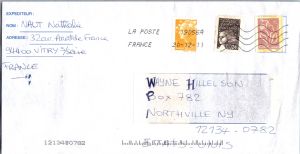 EXPEDITEUR:
NOM: NAUT Nathalie
ADRESSE: 32 Anatole France
94400 VITRY S/Seine
FRANCE
LA POSTE 19056A
FRANCE 30-12-11
WAYNE HILLELSON
BOX 782
NORTHVILLE NY
12134-0782
12134@0782